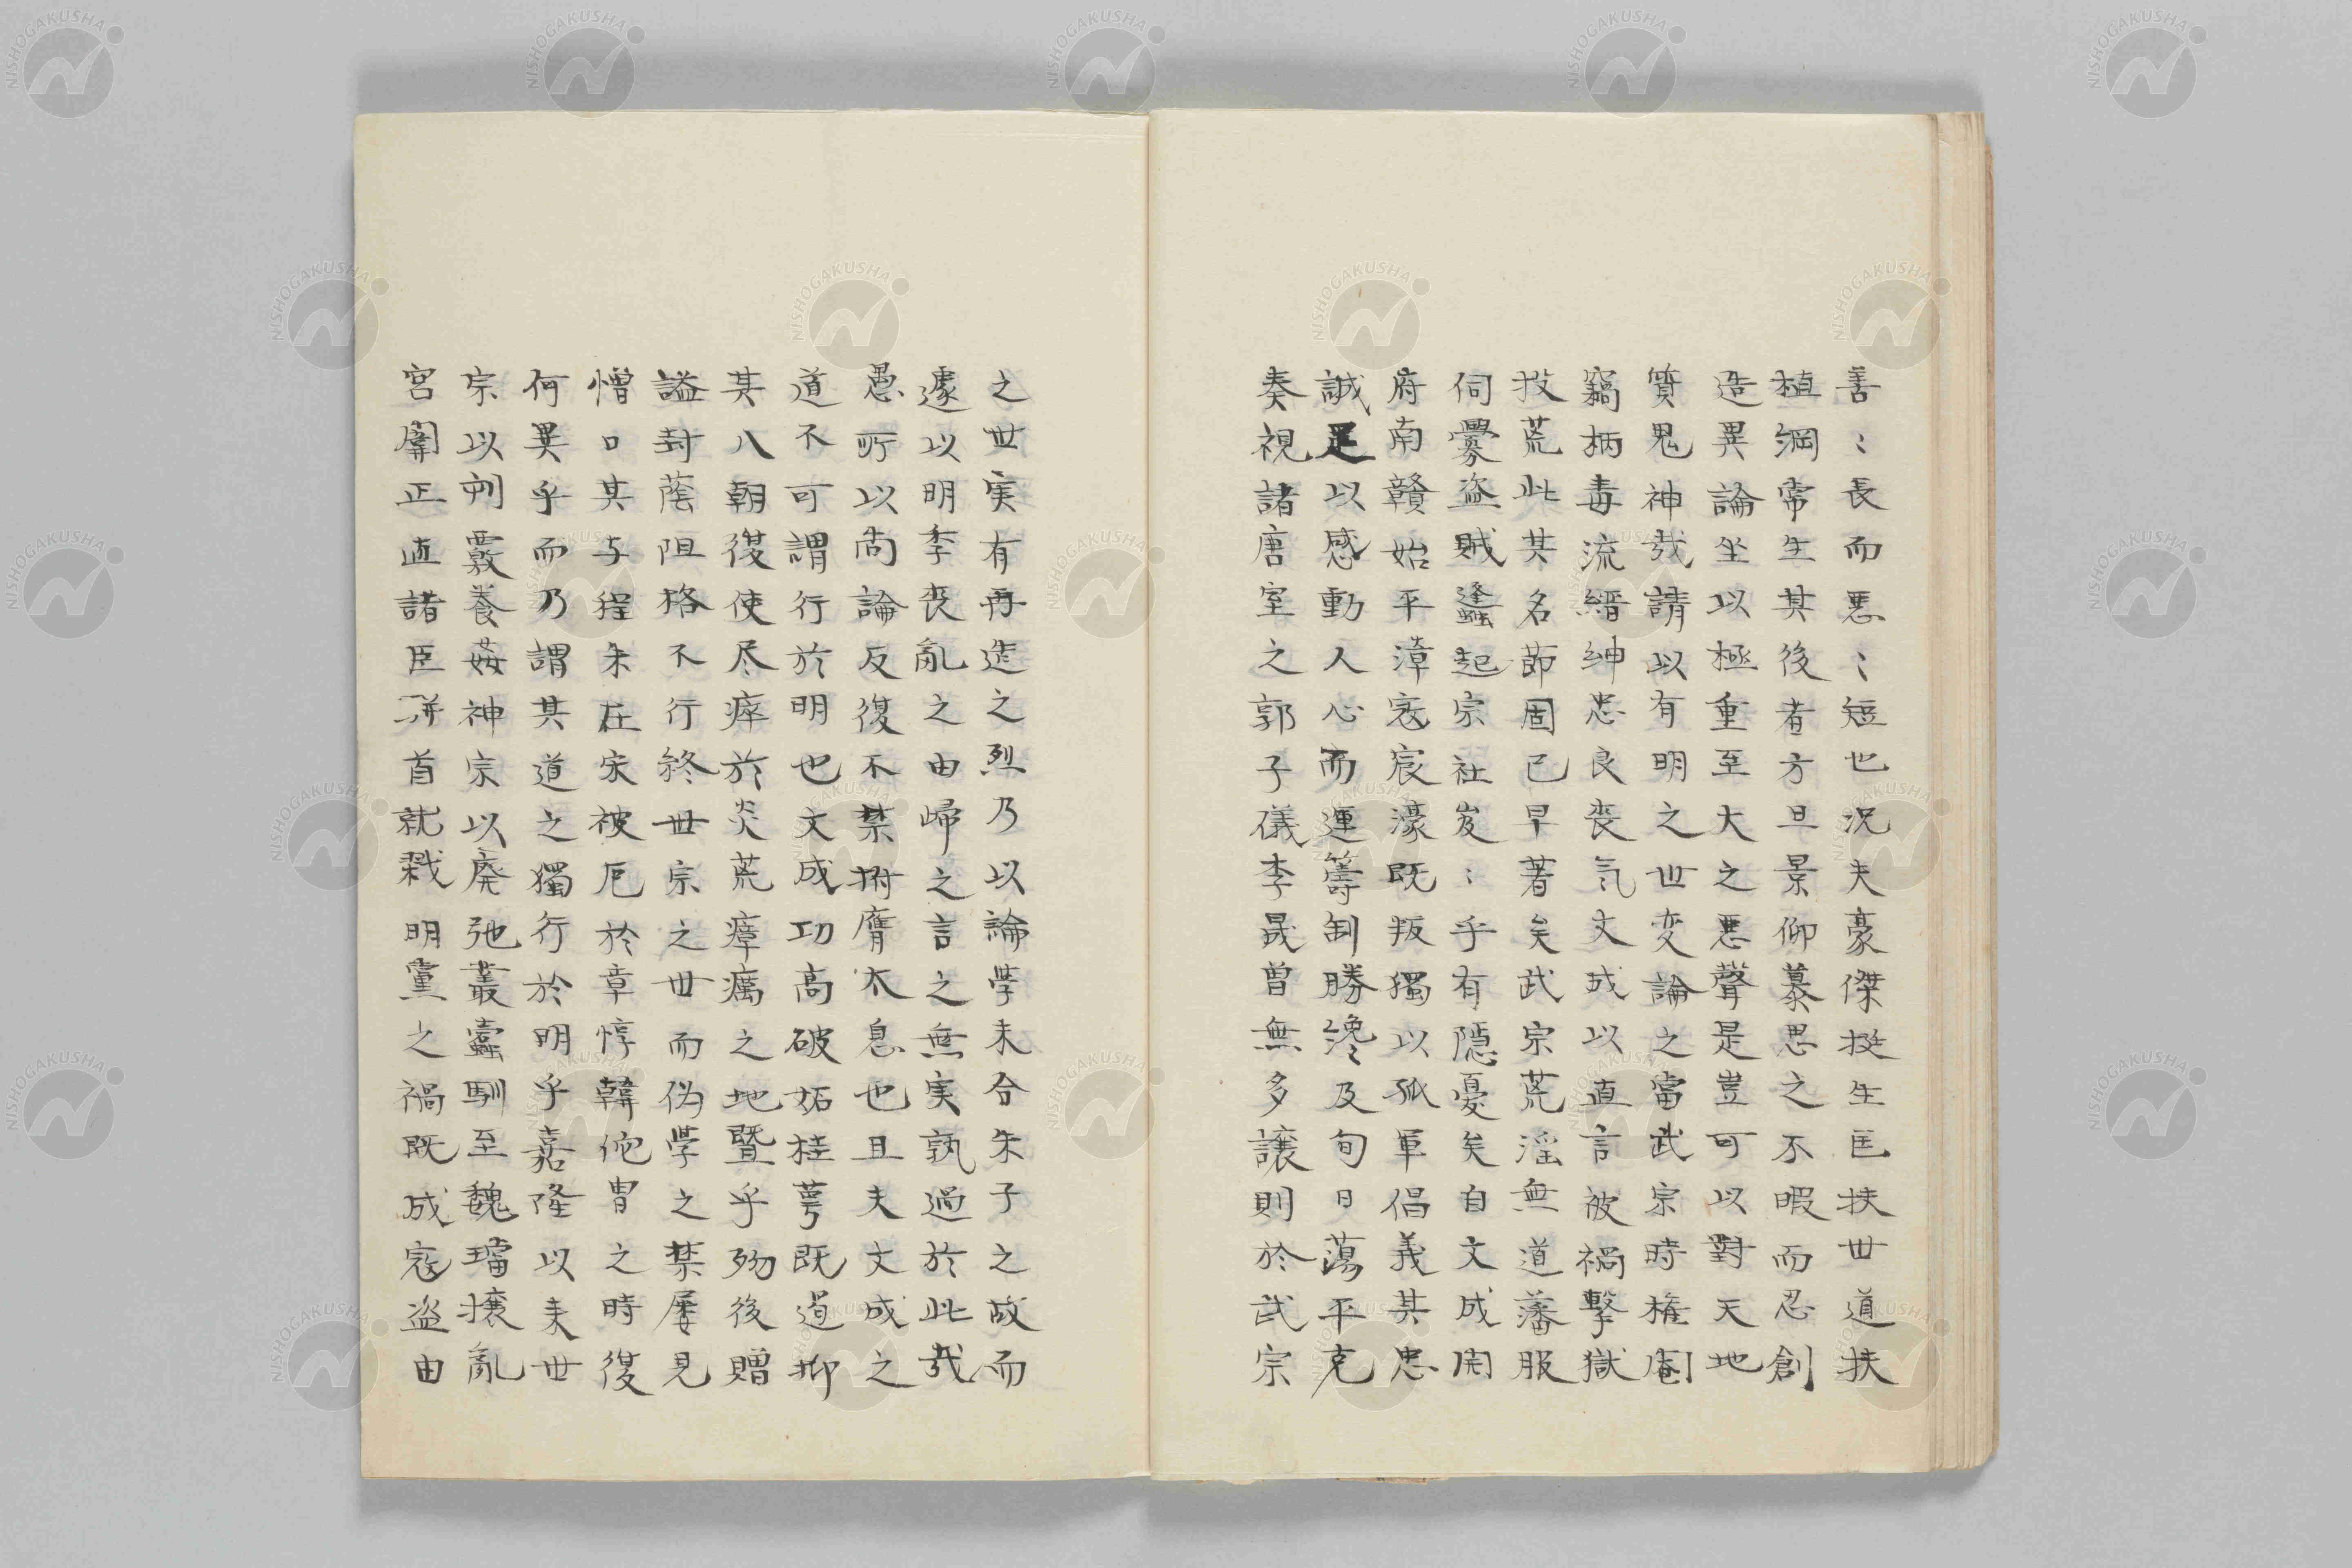 善〻長而悪〻短也況夫豪傑挺生匡扶世道扶
植綱常生其後者方旦景仰慕思之不暇而忍創
造異論坐以極重至大之悪聲是豈可以對天地
質鬼神哉請以有明之世変論之當武宗時権閹
竊柄毒流縉紳忠良喪気文成以直言被禍撃獄
投荒此其名節固已早著矣武宗荒淫無道藩服
伺釁盗賊蠭起宗社岌〻乎有隠憂矣自文成開
府南贛始平漳寇宸濠既叛獨以孤軍倡義其忠
誠足以感動人心而運籌制勝纔及旬日蕩平克
奏視諸唐室之郭子儀李晟曽無多譲則於武宗
之世実有再造之烈乃以論学未合朱子之故而
遽以明季喪亂之由歸之言之無実孰過於此哉
愚所以尚論反復不禁拊膺太息也且夫文成之
道不可謂行於明也文成功高破妬桂萼既逞抑
其八朝復使尽瘁於炎荒瘴癘之地曁乎歿後贈
謚封蔭阻格不行終世宗之世而偽学之禁屢見
憎口其与程朱在宋被厄於章惇韓侂冑之時復
何異乎而乃謂其道之獨行於明乎嘉隆以来世
宗以刑覈養姦神宗以廃弛叢蠹馴至魏璫攘亂
宮闈正直諸臣骿首就戮明黨之禍既成寇盗由